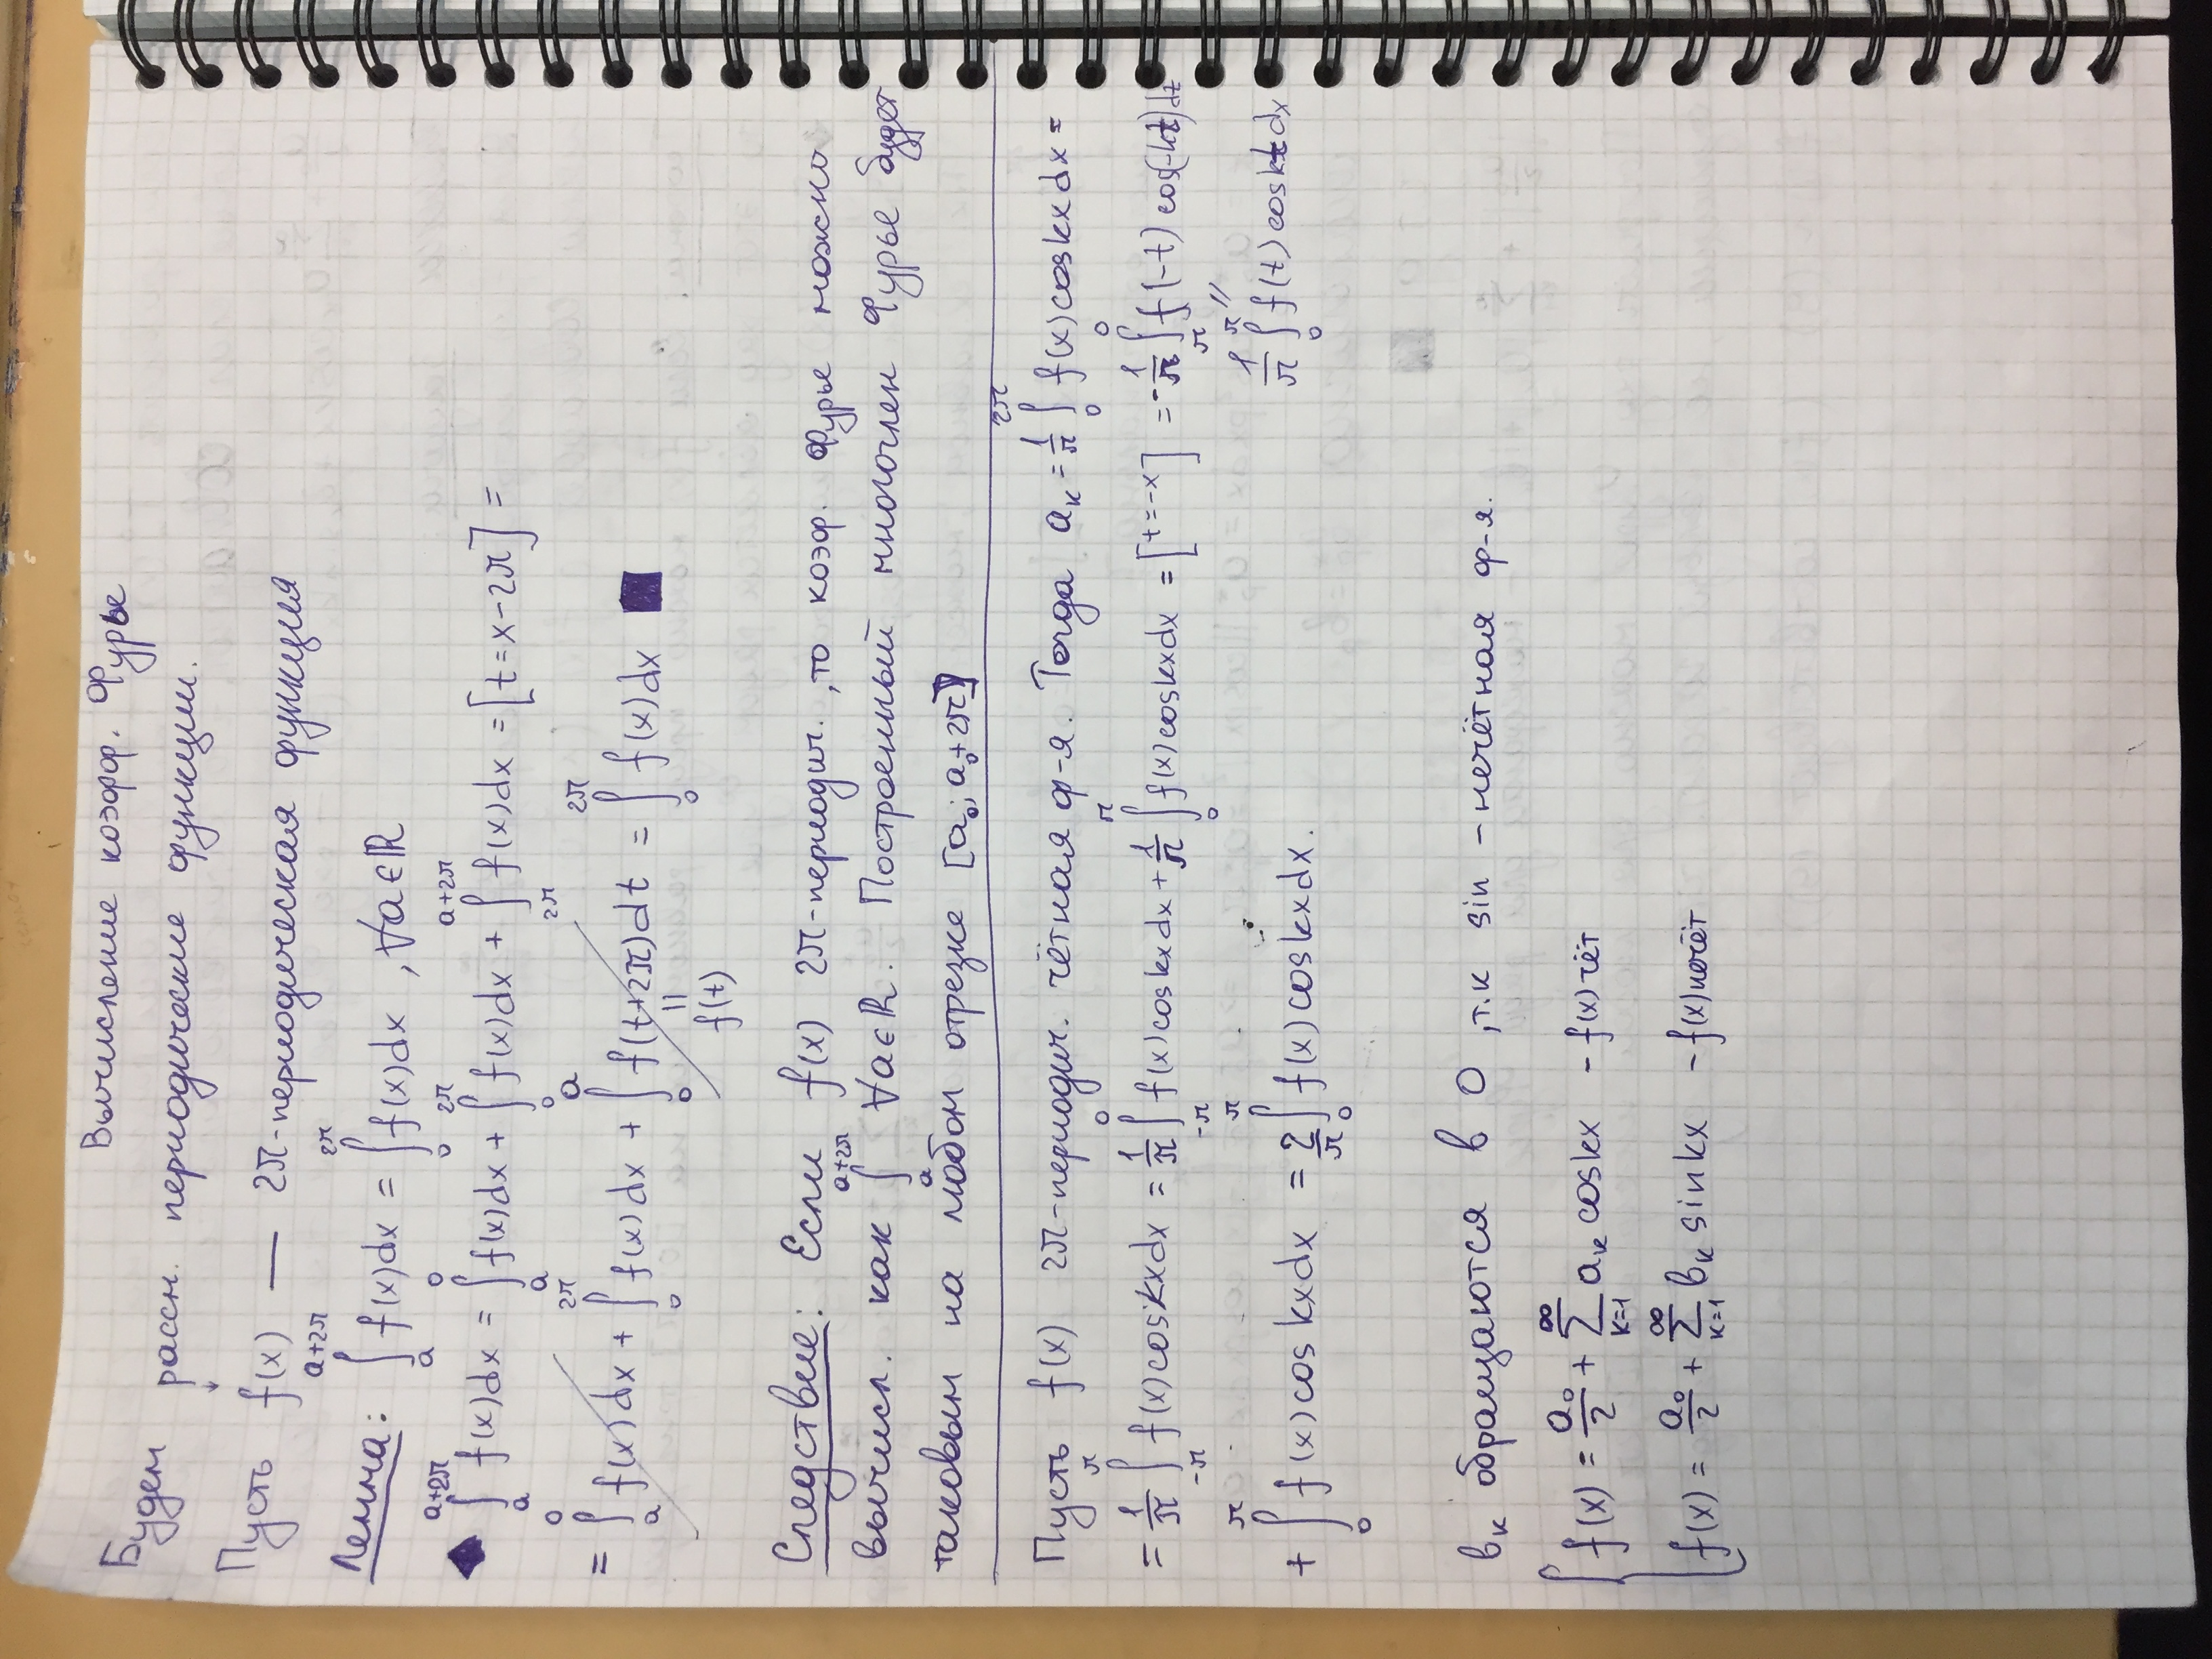 Вычисление коэфф. Фурье
Будем рассм. периодические функции.
Пусть f(x) — 2π-периодическая функция
Лемма: ∫_a^{a+2π} f(x)dx = ∫_0^{2π} f(x)dx , ∀a∈ℝ
◆ ∫_a^{a+2π} f(x)dx = ∫_a^0 f(x)dx + ∫_0^{2π} f(x)dx + ∫_{2π}^{a+2π} f(x)dx = [t=x-2π] =
= ∫_a^0 f(x)dx + ∫_0^{2π} f(x)dx + ∫_0^a f(t+2π)dt = ∫_0^{2π} f(x)dx ■
||
f(t)
Следствие: Если f(x) 2π-периодич. ,то коэф. Фурье можно
вычисл. как ∫_a^{a+2π} ∀a∈ℝ. Построенный многочлен Фурье будет
таковым на любом отрезке [a₀; a₀+2π]
Пусть f(x) 2π-периодич. чётная ф-я. Тогда a_k = 1/π ∫_0^{2π} f(x)coskxdx =
= 1/π ∫_{-π}^π f(x)coskxdx = 1/π ∫_{-π}^0 f(x)coskxdx + 1/π ∫_0^π f(x)coskxdx = [t=-x] = -1/π ∫_π^0 f(-t)cos(-kt)dt
||
1/π ∫_0^π f(t)cosktdx
+ ∫_0^π f(x)coskxdx = 2/π ∫_0^π f(x)coskxdx.
b_k обращаются в 0 ,т.к sin – нечётная ф-я.
{ f(x) = a₀/2 + ∑_{k=1}^∞ a_k coskx - f(x) чёт
f(x) = a₀/2 + ∑_{k=1}^∞ b_k sinkx - f(x) нечёт